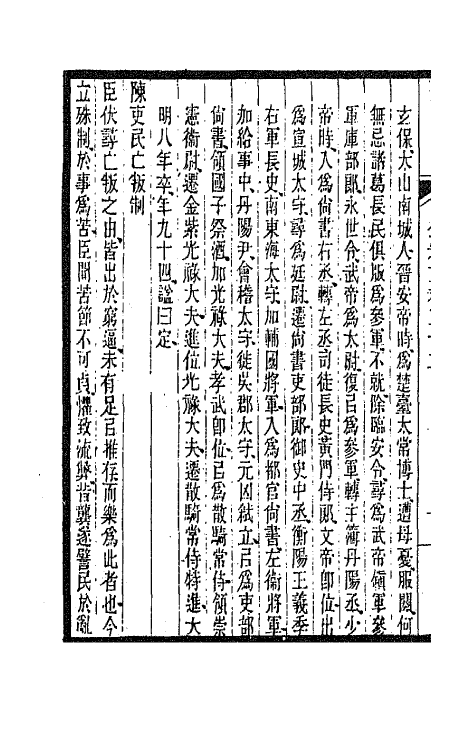 玄保太山南城人晉安帝時爲楚臺太常博士遭母憂服闋何
無忌諸葛長民俱版爲參軍不就除臨安令尋爲武帝領軍參
軍庫部郎永世令武帝爲太尉復㠯爲參軍轉主簿丹陽丞少
帝時入爲尙書右丞轉左丞司徒長史黃門侍郎文帝卽位出
爲宣城太守尋爲廷尉遷尙書吏部郎御史中丞衡陽王義季
右軍長史南東海太守加輔國將軍入爲都官尙書左衞將軍
加給事中丹陽尹會稽太守徙吳郡太守元凶弒立㠯爲吏部
尙書領國子祭酒加光祿大夫孝武卽位㠯爲散騎常侍領崇
憲衞尉遷金紫光祿大夫進位光祿大夫遷散騎常侍特進大
明八年卒年九十四諡曰定
陳吏民亡叛制
臣伏尋亡叛之由皆出於窮逼未有足㠯推存而樂爲此者也今
立殊制於事爲苦臣聞苦節不可貞懼致流弊昔龔遂譬民於亂